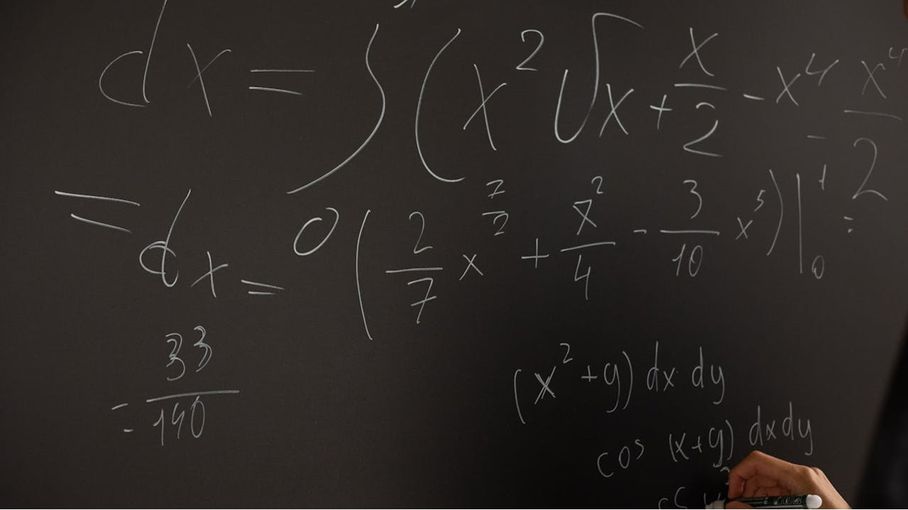 dx = ∫ (x² √x + x/2 - x⁴ - x⁴/2
= dx = 0 (2/7 x^7/2 + x²/4 - 3/10 x⁵) |₀¹ =
= 33/140
(x² + y) dx dy
cos (x+y) dxdy